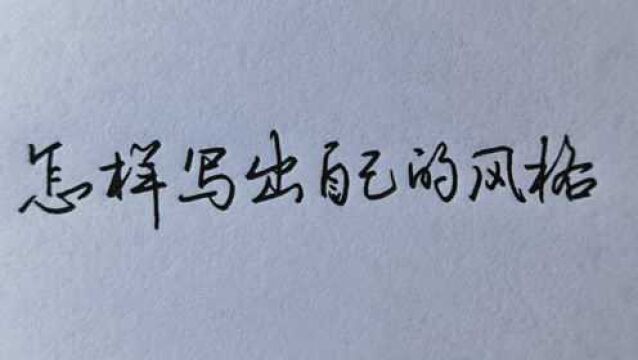 怎样写出自己的风格